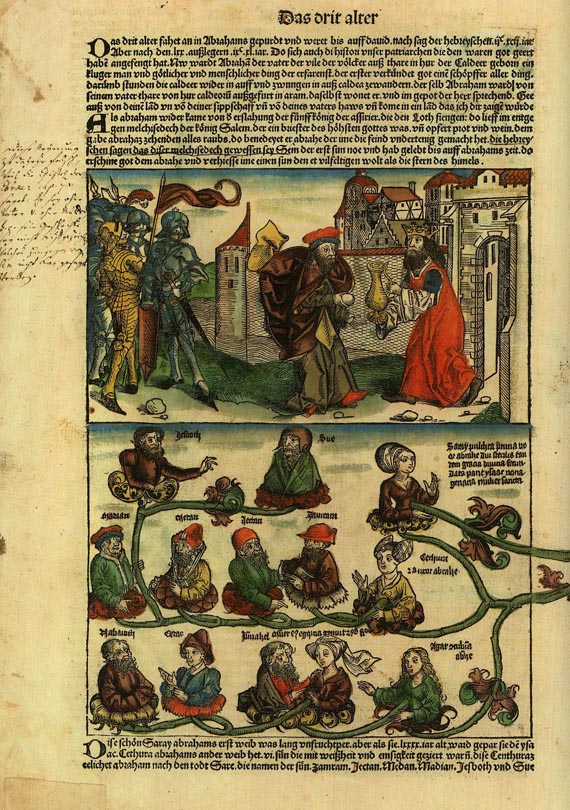 Das drit alter
Das drit alter fahet an in Abrahams gepurdt vnd weret bis auff dauid. nach sag der hebreyschen.
Aber nach den .lxx. außlegern. Do sich auch di histori vnser patriarchen die den waren got geert
habē angefengt hat. Nw wardt Abrahā der vater der vile der völcker auß thare in hur der Caldeer geborn ein
kluger man vnd götlicher vnd menschlicher ding der erfarenst. der erster verkündet got eine schöpffer aller ding.
darumb stunden die caldeer wider in auff vnd zwungen in auß caldea zewandern. der selb Abraham wardt von
seinen vater thare von hur caldeorū außgefurt in aram. daselbst wonet er. vnd im gepot der herr sprechend. Gee
auß von deinē land vn vō deiner sippschafft vn vō deines vaters haws vn kome in ein land das ich dir zaige würde
Als abraham wider kame von d erslahung der fünff könig der assirier. die den Loth fiengen: do lieff im entge
gen melchisedech der könig Salem. der ein briester des höhsten gottes was. vn opfert prot vnd wein. dem
gabe abrahā zehenden alles raubs. do benedeyet er abrahe der ime die feind vndertenig gemacht het. die hebrey
schen sagen das diser melchisedech gewessen sey Sem der erst sun noe vnd hab gelebt bis auff abrahams zeit. do
erschine got dem abrahe vnd verhiesse ime einen sun den er vilfeltigen wolt als die stern des himels.
Jesboth
Sue
Saray pulchra prima vx
or abrahe
Madian
Medan
Jectan
Zamram
Cethura
2a uxor abrahe
Nabaioth
Cedar
Ismahel
Agar
Dise schön Saray abrahams erst weib was lang vnfruchtper. aber als sie .lxxx. iar alt ward gepar sie dē ysa
ac. Cethura abrahams ander weib het .vi. sün die mit weißheit vnd emsigkeit geziert warn. dise Centhurā
eelichet abraham nach den todt Sare. die namen der sün. Zamram. Jectan. Medan. Madian. Jesboth vnd Sue